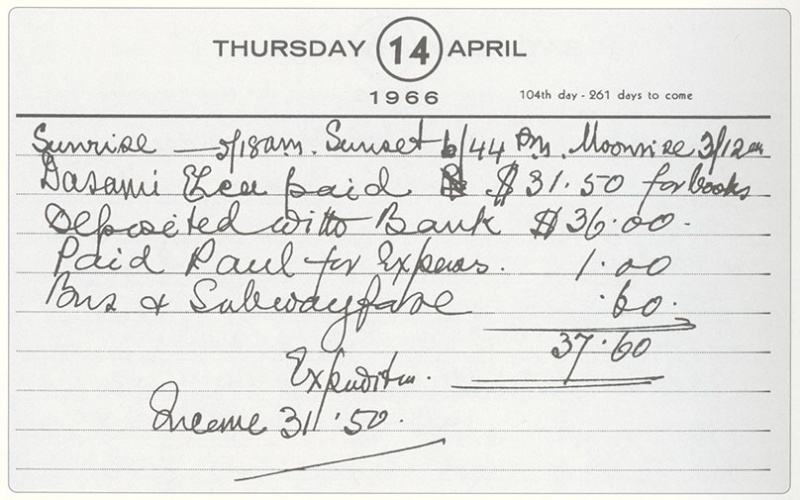 THURSDAY 14 APRIL
1966
104th day - 261 days to come
Sunrise — 5/18 am. Sunset 6/44 Pm. Moonrise 3/12 am
Dasami paid $31.50 for books
Deposited with Bank $36.00.
Paid Paul for Expens. 1.00
Bus & Subwayfare .60.
37.60
Expenditu.
Income 31.50.